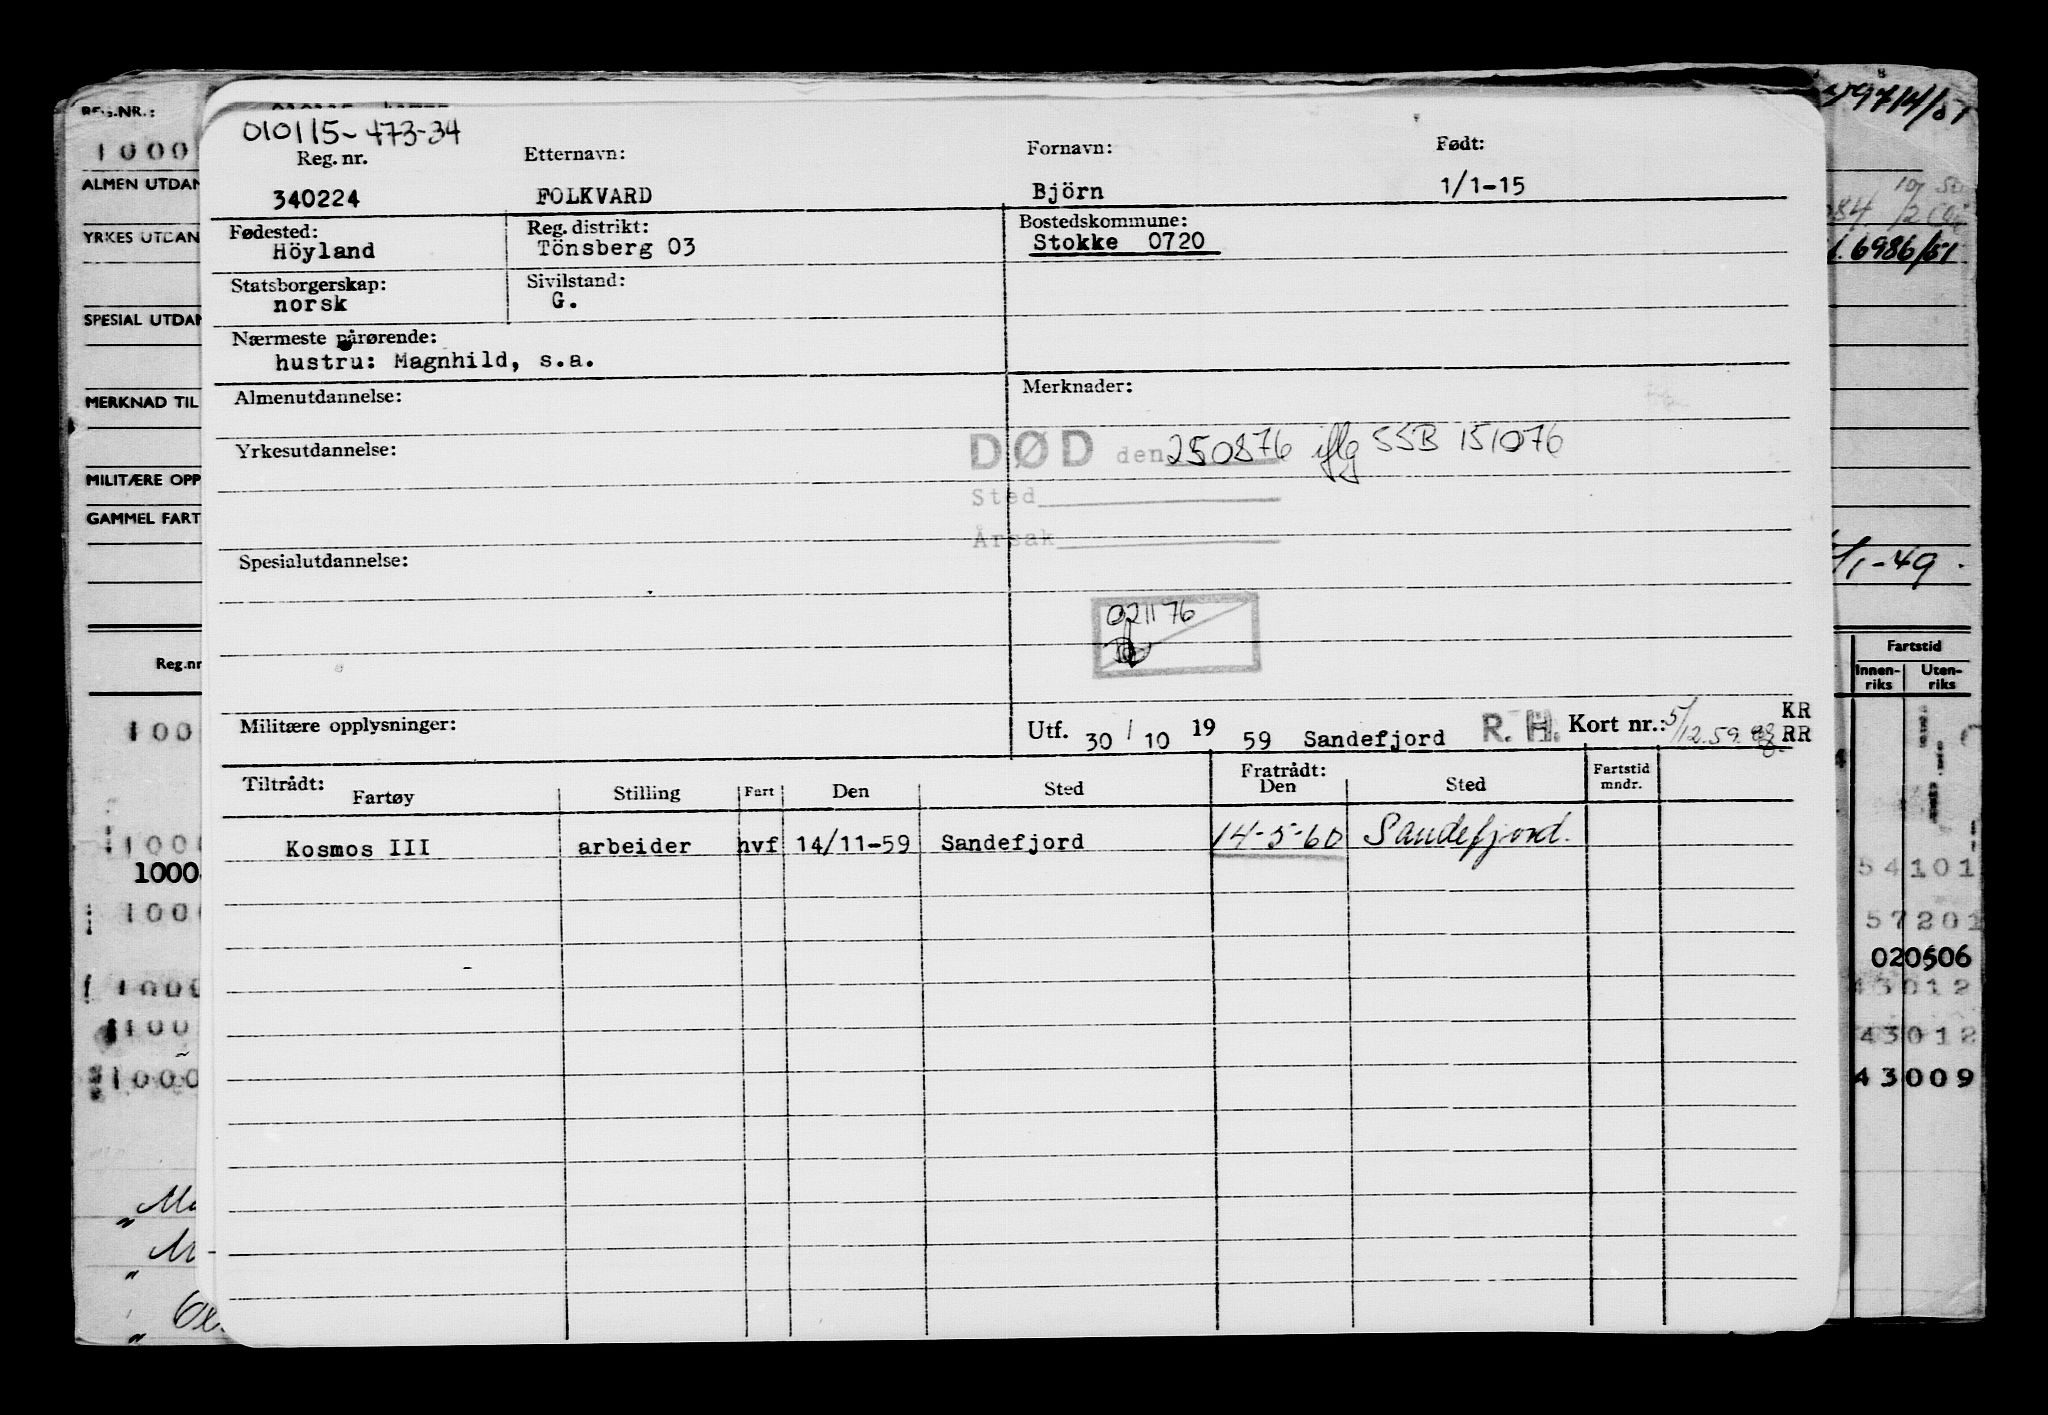 REG.NR.:
1000
ALMEN UTDAN
YRKES UTDAN
SPESIAL UTDAN
MERKNAD TIL
MILITÆRE OPP
GAMMEL FART
Reg.nr
100
1000
1000
1000
1000
100
1000
010115-473-34
Reg. nr. Etternavn: Fornavn: Født:
340224 FOLKVARD Björn 1/1-15
Fødested: Reg. distrikt: Bostedskommune:
Höyland Tönsberg 03 Stokke 0720
Statsborgerskap: Sivilstand:
norsk G.
Nærmeste pårørende:
hustru: Magnhild, s.a.
Almenutdannelse: Merknader:
Yrkesutdannelse: DØD den 250876 iflg SSB 151076
Sted
Årsak
Spesialutdannelse:
021176
Militære opplysninger: Utf. 30/10 1959 Sandefjord R. H. Kort nr.: 5/12.59. KR
RR
Tiltrådt: Fratrådt:
Fartøy Stilling Fart Den Sted Den Sted Fartstid mndr.
Kosmos III arbeider hvf 14/11-59 Sandefjord 14-5-60 Sandefjord.
9714/51
6986/51
1-49
Fartstid
Innen-riks Uten-riks
54101
57201
020506
43012
43012
43009